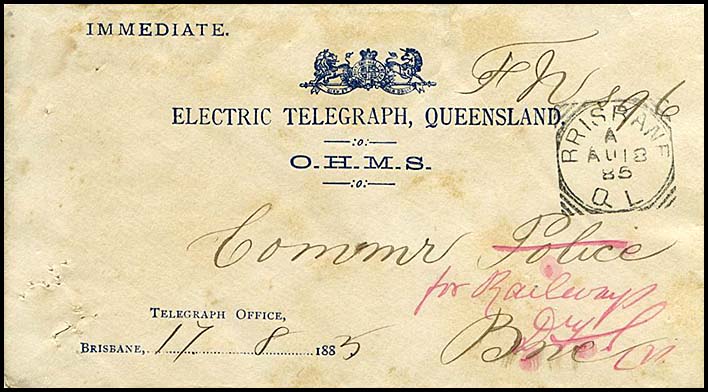 IMMEDIATE.
ELECTRIC TELEGRAPH, QUEENSLAND.
—:o:—
O.H.M.S.
—:o:—
BRISBANE
A
AU 18
85
Q L
Commr Police
for Railways
Bne
TELEGRAPH OFFICE,
BRISBANE, 17 8 1885